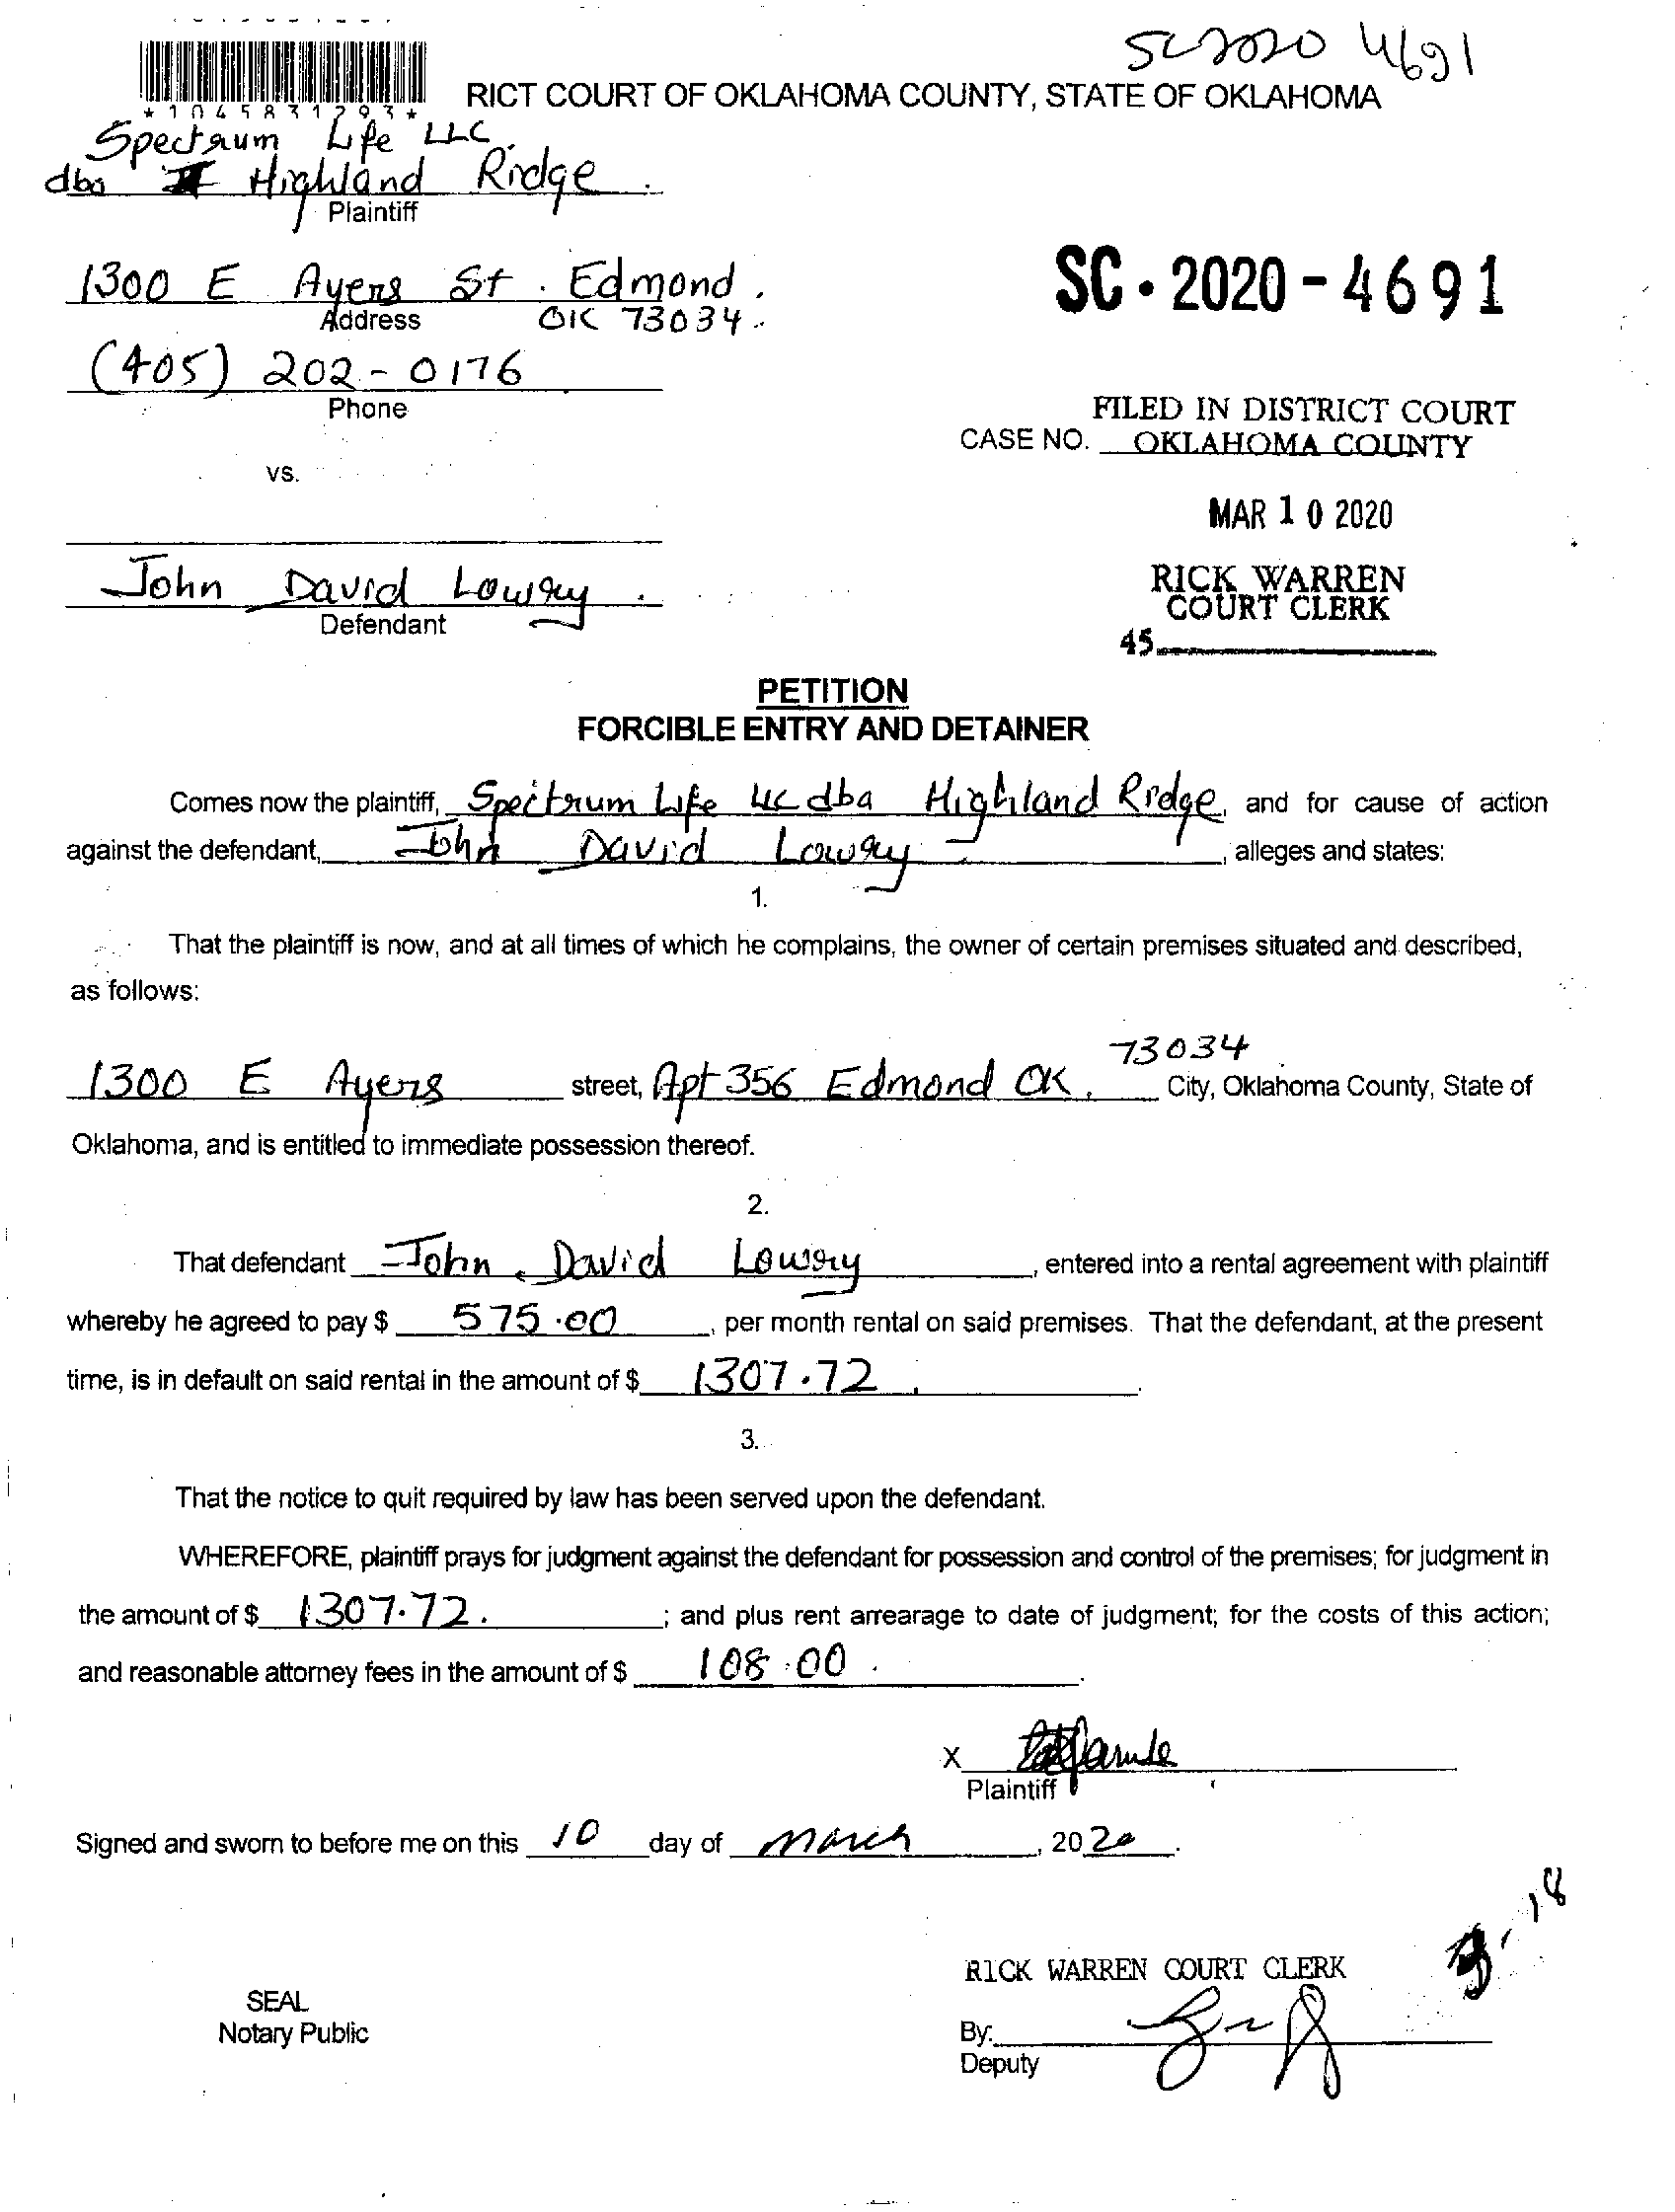 SC2020 4691
*1045831293*
RICT COURT OF OKLAHOMA COUNTY, STATE OF OKLAHOMA
Spectrum Life LLC
dba Highland Ridge
Plaintiff
1300 E Ayers St. Edmond.
Address OK 73034.
SC-2020-4691
(405) 202-0176
Phone
FILED IN DISTRICT COURT
CASE NO. OKLAHOMA COUNTY
vs.
MAR 10 2020
John David Lowry.
Defendant
RICK WARREN
COURT CLERK
45
PETITION
FORCIBLE ENTRY AND DETAINER
Comes now the plaintiff, Spectrum Life LLC dba Highland Ridge, and for cause of action
against the defendant, John David Lowry, alleges and states:
1.
That the plaintiff is now, and at all times of which he complains, the owner of certain premises situated and described,
as follows:
1300 E Ayers street, Apt 356 Edmond OK, 73034 City, Oklahoma County, State of
Oklahoma, and is entitled to immediate possession thereof.
2.
That defendant John David Lowry, entered into a rental agreement with plaintiff
whereby he agreed to pay $ 575.00, per month rental on said premises. That the defendant, at the present
time, is in default on said rental in the amount of $ 1307.72.
3.
That the notice to quit required by law has been served upon the defendant.
WHEREFORE, plaintiff prays for judgment against the defendant for possession and control of the premises; for judgment in
the amount of $ 1307.72. ; and plus rent arrearage to date of judgment; for the costs of this action;
and reasonable attorney fees in the amount of $ 108.00.
X
Plaintiff
Signed and sworn to before me on this 10 day of March, 2020.
RICK WARREN COURT CLERK
SEAL
Notary Public
By:
Deputy